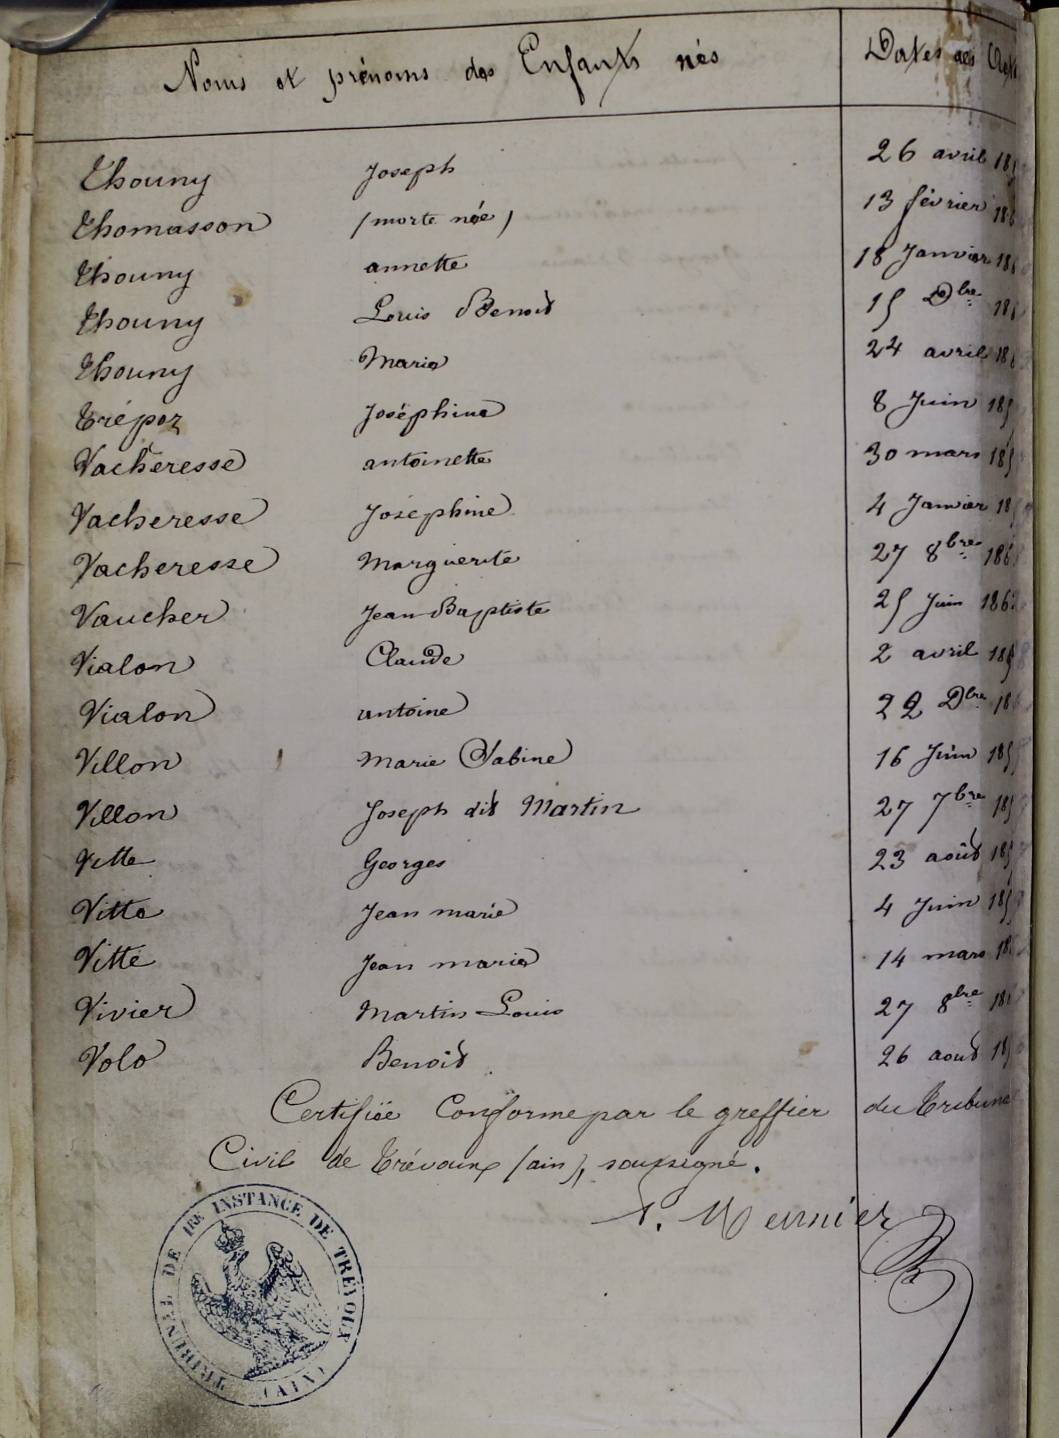 Noms et prénoms des Enfants nés Dates des Actes
Thouny Joseph 26 avril 185
Thomasson (morte née) 13 février 186
Thouny annette 18 Janvier 186
Thouny Louis Benoit 15 Dbre 186
Thouny Marie 24 avril 186
Trépoz Joséphine 8 Juin 185
Vacheresse antoinette 30 mars 185
Vacheresse Joséphine 4 Janvier 185
Vacheresse Marguerite 27 8bre 186
Vaucher Jean Baptiste 25 Juin 186
Vialon Claude 2 avril 185
Vialon antoine 22 Dbre 186
Villon Marie Sabine 16 Juin 185
Villon Joseph dit Martin 27 7bre 185
Vitte Georges 23 août 185
Vitte Jean marie 4 Juin 185
Vitte Jean marie 14 mars 186
Vivier Martin Louis 27 8bre 186
Volo Benoit 26 aout 185
Certifiée Conforme par le greffier du Tribunal
Civil de Trévoux (ain), soussigné.
Meunier
TRIBUNAL DE 1RE INSTANCE DE TRÉVOUX (AIN)